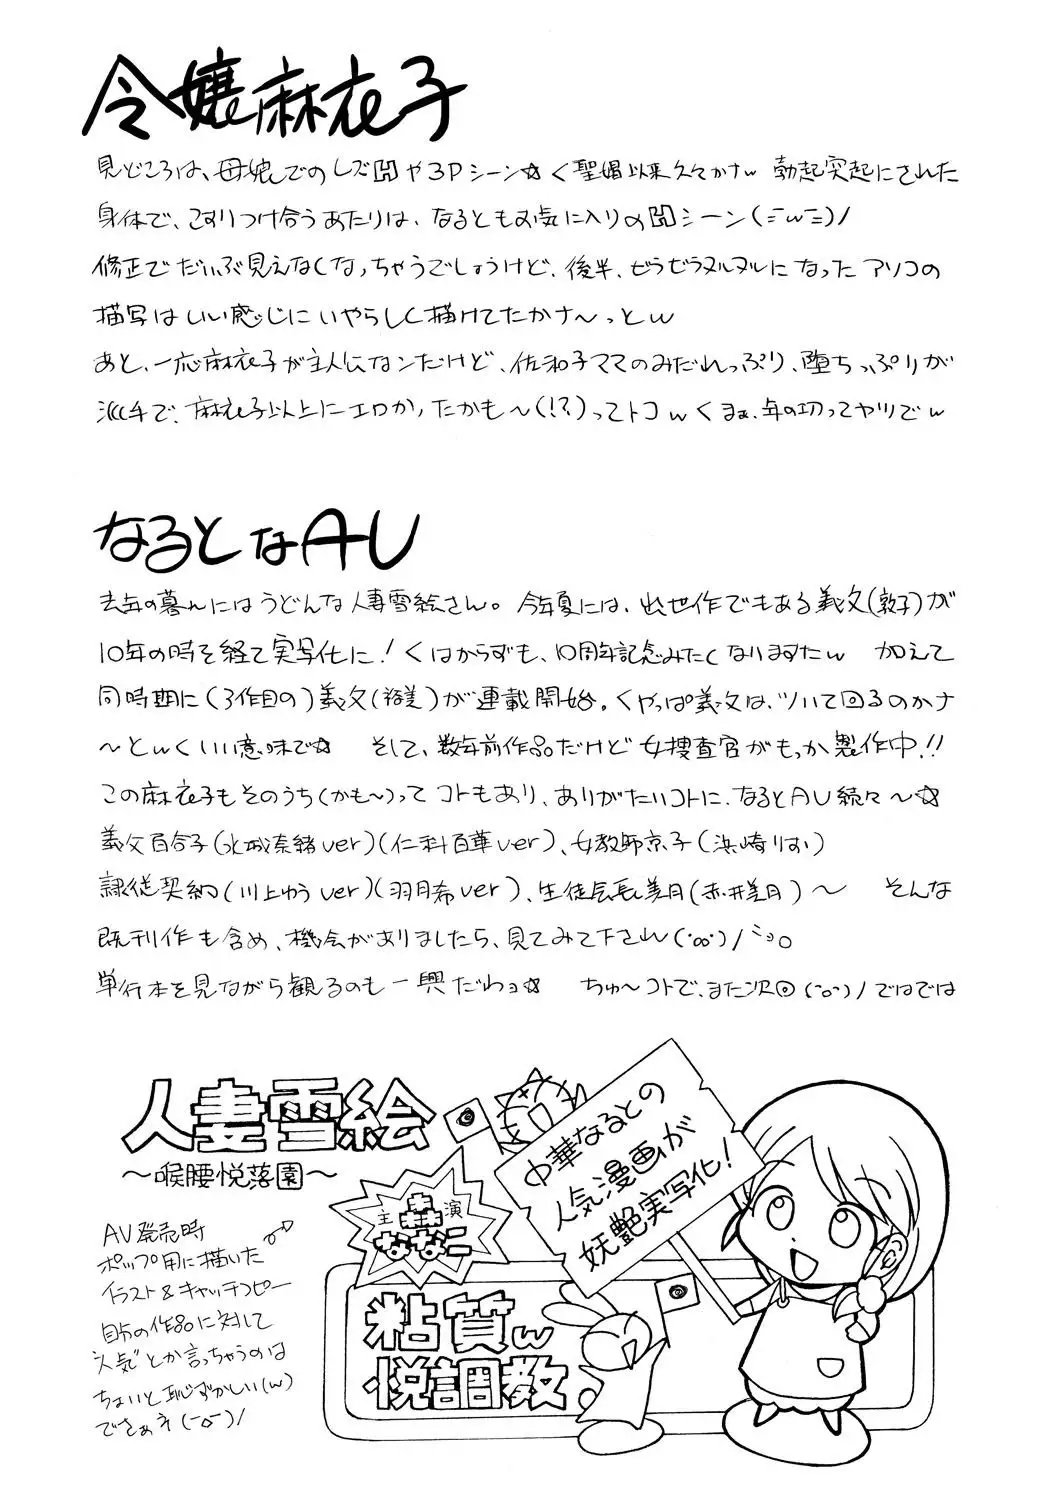 令嬢麻衣子
見どころは、母娘でのレズHや3Pシーン☆く聖娼以来久々かナw 勃起突起にされた
身体で、こすりつけ合うあたりは、なるともお気に入りのHシーン(=w=)ノ
修正でだいぶ見えなくなっちゃうでしょうけど、後半、ぜらぜらヌルヌルになったアソコの
描写はいい感じにいやらしく描けてたかナ〜っとw
あと、一応麻衣子が主人公なンだけど、佐和子ママのみだれっぷり、堕ちっぷりが
派手で、麻衣子以上にエロかったかも〜(!?)ってトコwくまぁ、年の功ってヤツでw
なるとなAV
去年の暮れにはうどんな人妻雪絵さん。 今年夏には、出世作でもある義父(敦子)が
10年の時を経て実写化に!くはからずも、10周年記念みたくなりますたw 加えて
同時期に(3作目の)義父(裕美)が連載開始。くやっぱ義父は、ツいて回るのかナ
〜とwくいい意味で☆ そして、数年前作品だけど女捜査官がもっか製作中!!
この麻衣子もそのうち(かも〜)ってコトもあり、ありがたいコトに、なるとAV続々〜☆
義父百合子(北城奈緒ver)(仁科百華ver)、女教師京子(浜崎りお)
隷従契約(川上ゆうver)(羽月希ver)、生徒会長美月(赤井美月)〜 そんな
既刊作も含め、機会がありましたら、見てみて下さいw(･∞･)ノ
単行本を見ながら観るのも一興だわョ☆ ちゅ〜コトで、また次回(^o^)ノではでは
人妻雪絵
〜喉腰悦落園〜
主演
ななこ
中華なるとの
人気漫画が
妖艶実写化!
AV発売時
ポップ用に描いた
イラスト&キャッチコピー
自分の作品に対して
"人気"とか言っちゃうのは
ちょいと恥ずかしい(w)
でさぁネ(-o-)ノ
粘質w
悦調教。